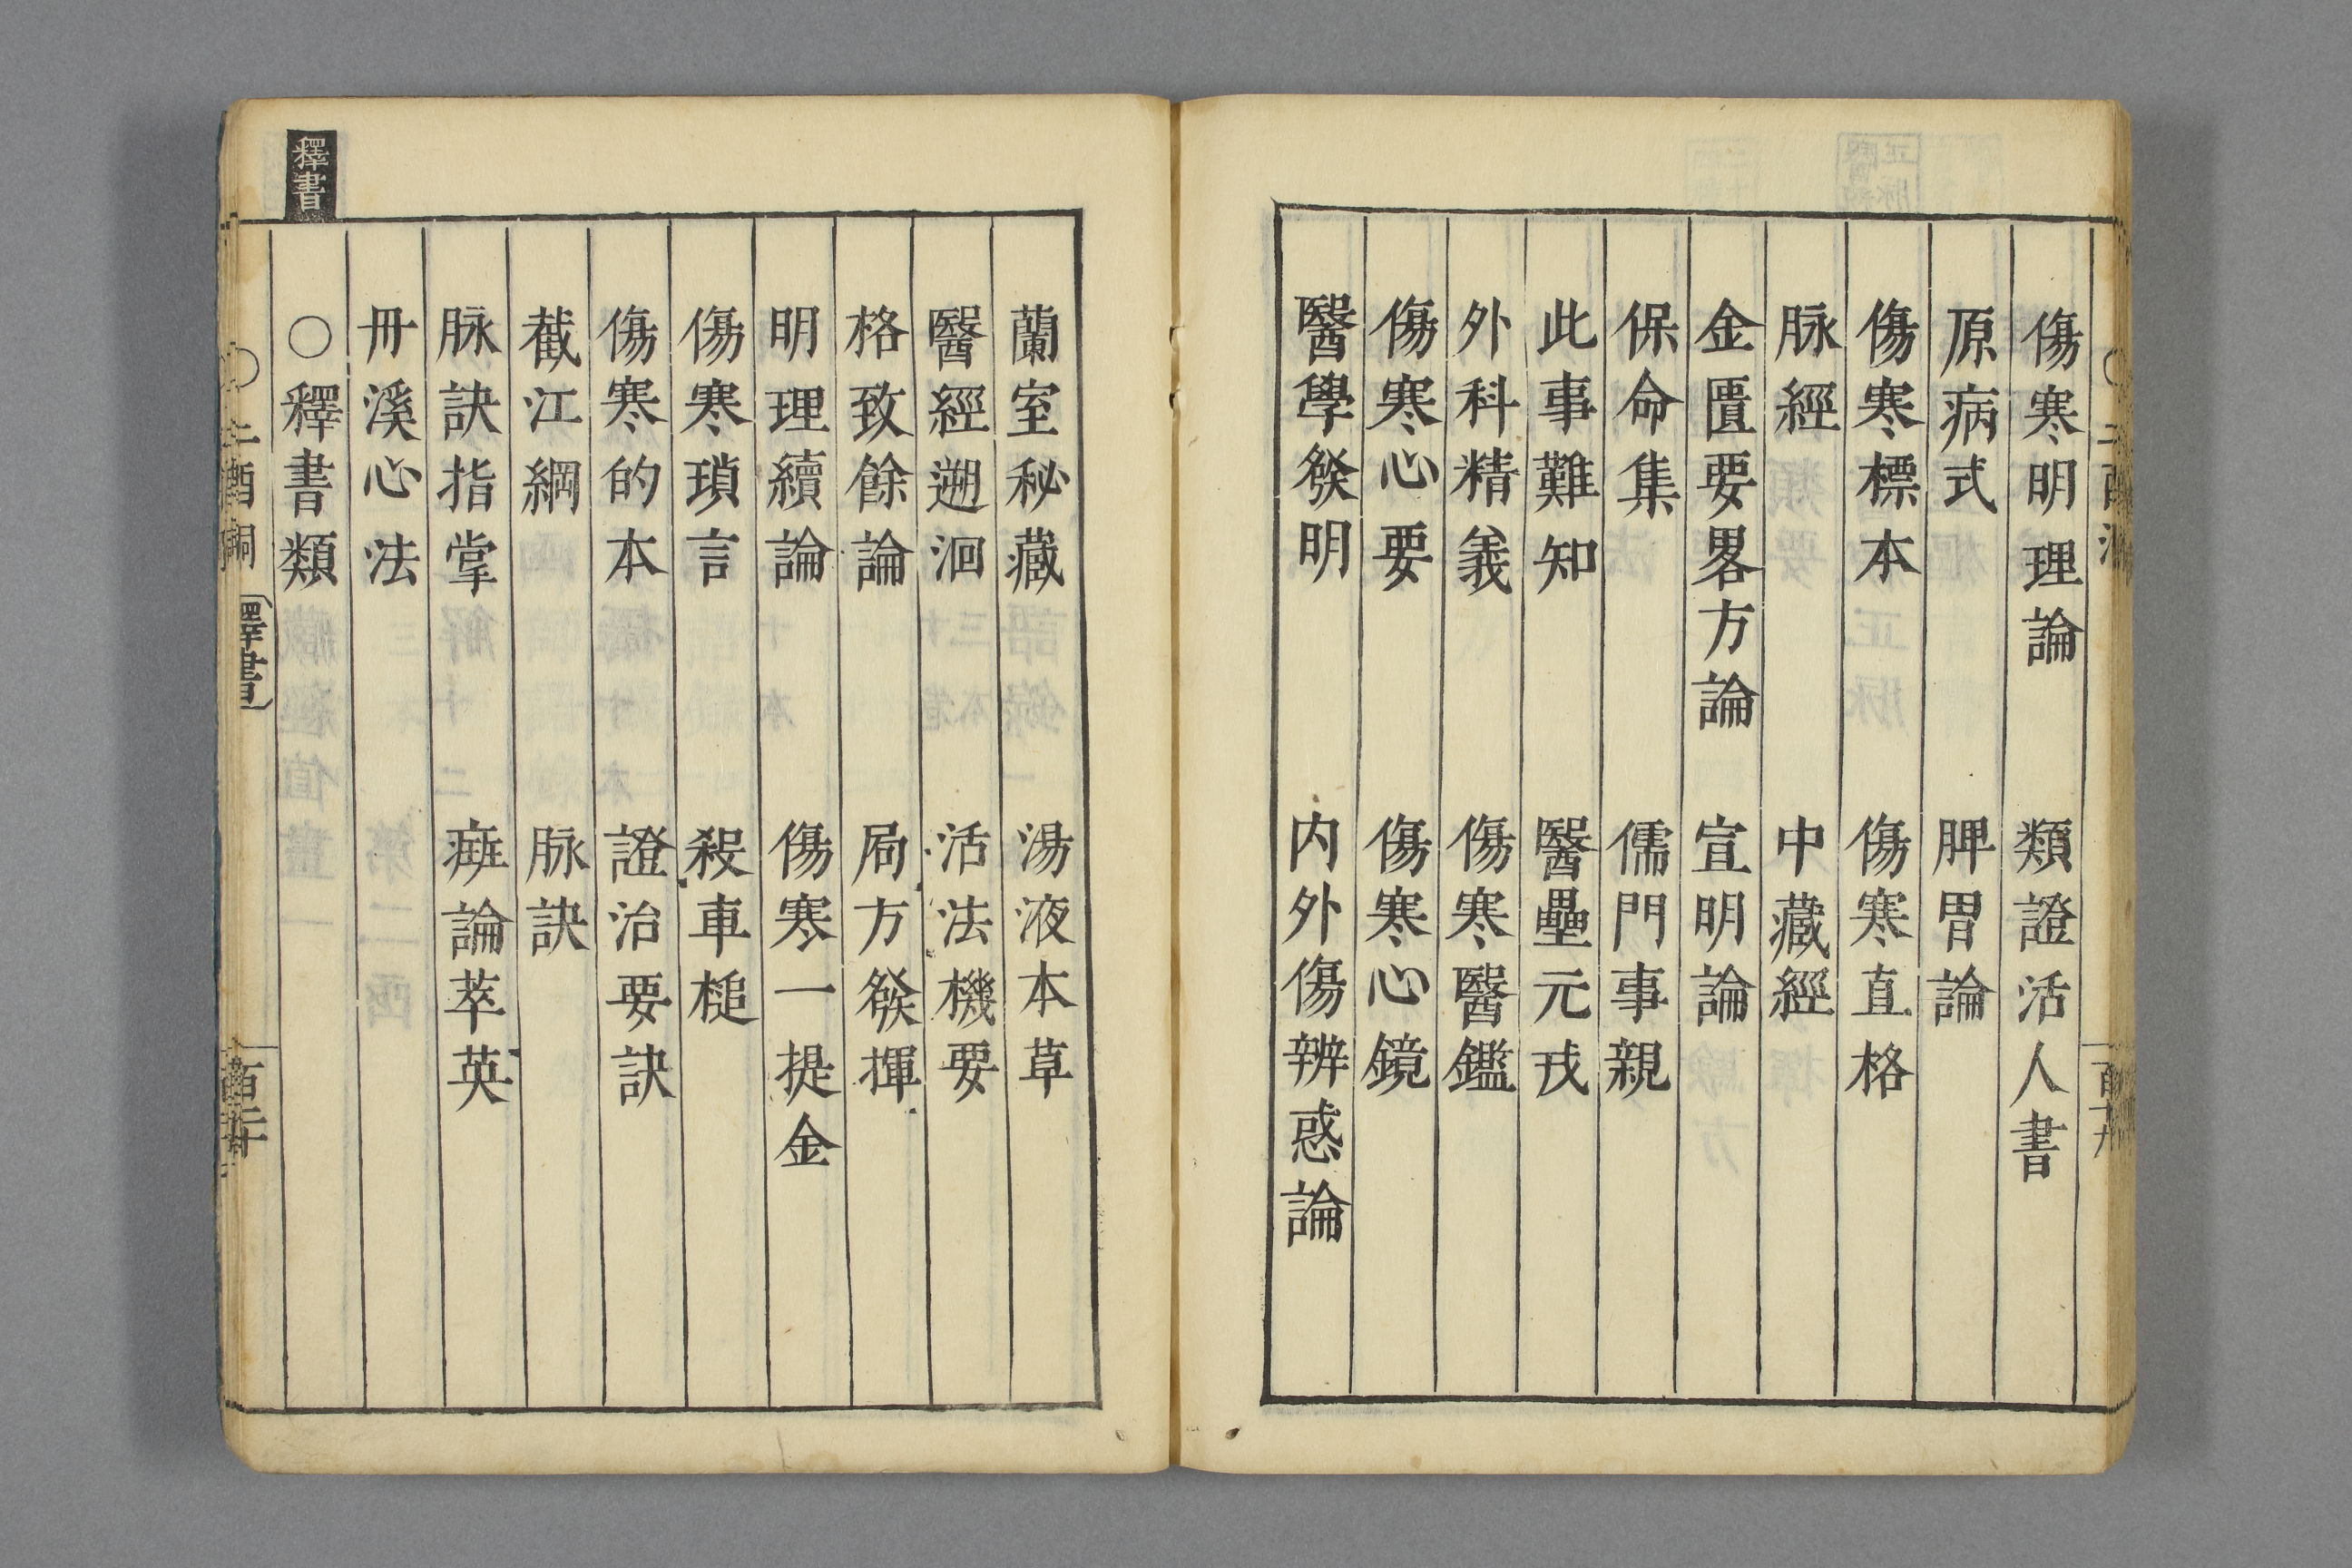 傷寒明理論 類證活人書
原病式 脾胃論
傷寒標本 傷寒直格
脉經 中藏經
金匱要畧方論 宣明論
保命集 儒門事親
此事難知 醫壘元戎
外科精義 傷寒醫鑑
傷寒心要 傷寒心鏡
醫學發明 内外傷辨惑論
蘭室秘藏 湯液本草
醫經遡洄 活法機要
格致餘論 局方發揮
明理續論 傷寒一提金
傷寒瑣言 殺車槌
傷寒的本 證治要訣
截江綱 脉訣
脉訣指掌 痓論萃英
丹溪心法
○釋書類
釋書
釋書